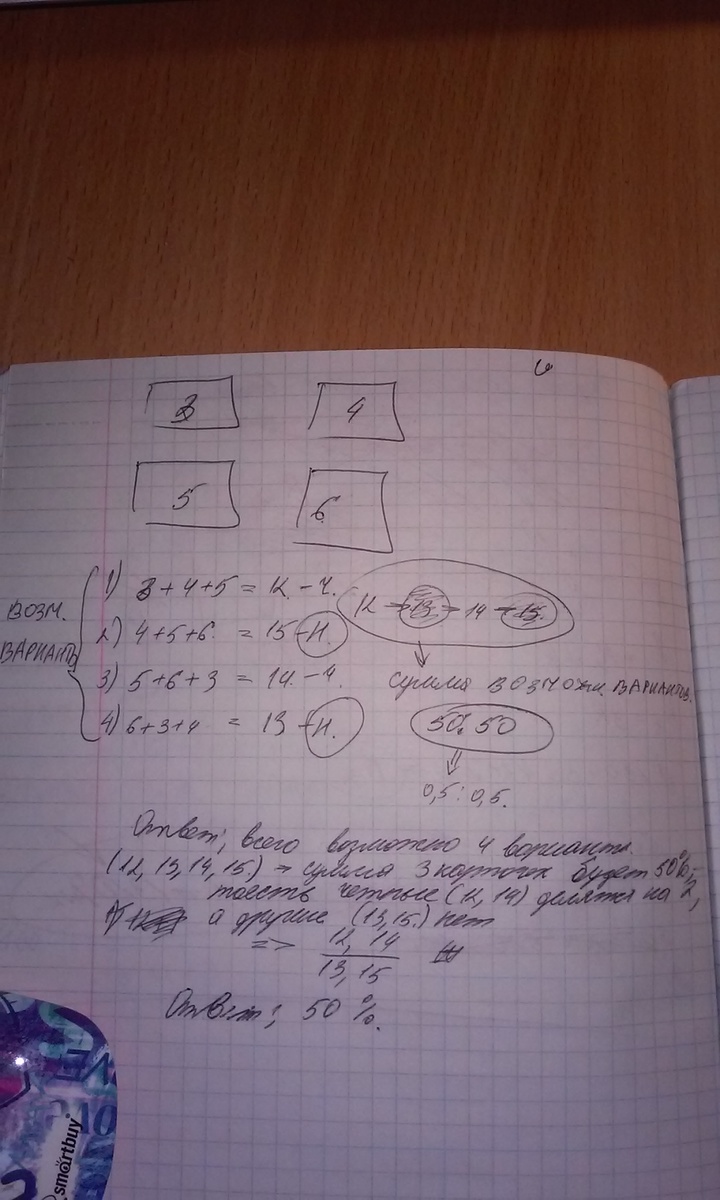 3 4
5 6
возм.
варианты
1) 3+4+5 = 12 - ч.
2) 4+5+6 = 15 - н.
3) 5+6+3 = 14 - ч.
4) 6+3+4 = 13 - н.
12 → 13 → 14 → 15
сумма возможн. вариантов.
50:50
0,5:0,5.
Ответ; всего возможно 4 варианта.
(12, 13, 14, 15.) → сумма 3 карточек будет 50%
тоесть четные (12, 14) делятся на 2,
а другие (13,15.) нет
=> 12, 14
13, 15
Ответ; 50 %.
smartbuy